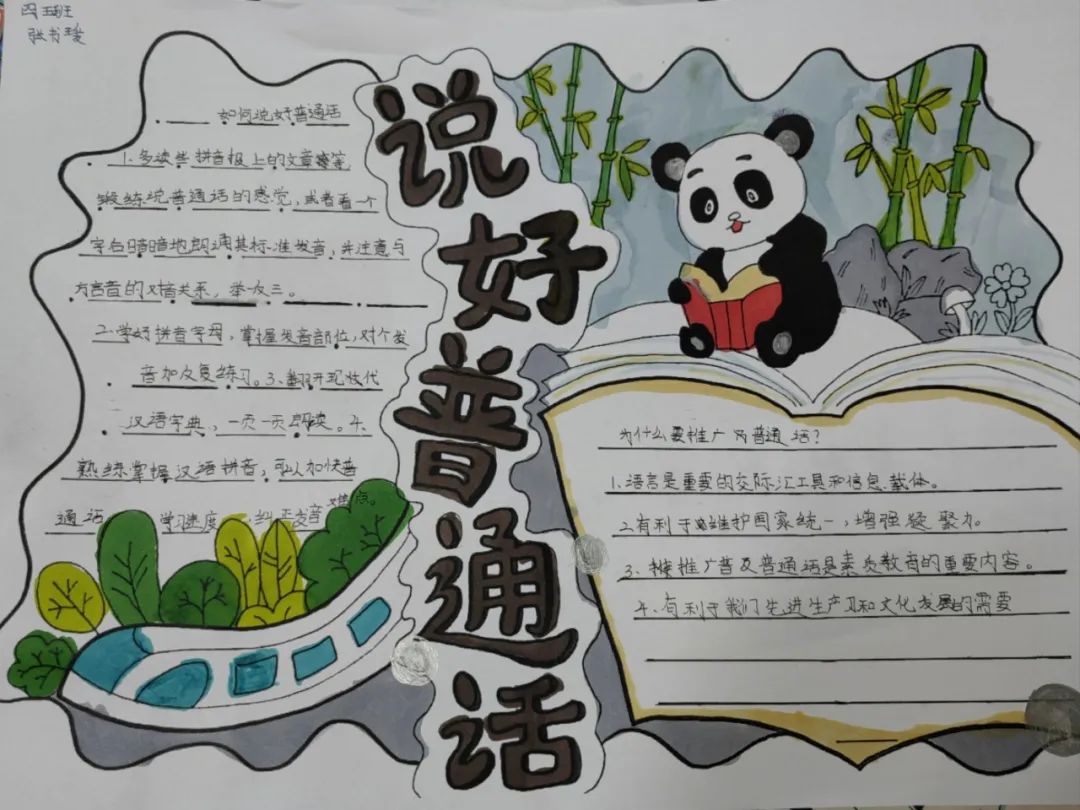 四五班
张书瑗
说好普通话
如何说好普通话
1.多读些拼音报上的文章
锻练说普通话的感觉,或者看一个
字后暗暗地朗诵其标准发音,并注意与
方言音的对音关系,举一反三。
2.学好拼音字母,掌握发音部位,对个发
音加反复练习。3.翻开现代
汉语字典,一页一页朗读。4.
熟练掌握汉语拼音,可以加快普
通话学习速度,纠正发音难点。
为什么要推广普通话?
1.语言是重要的交际汇工具和信息载体。
2.有利于维护国家统一,增强凝聚力。
3、推广普及普通话是素质教育的重要内容。
4、有利于我们先进生产习和文化发展的需要